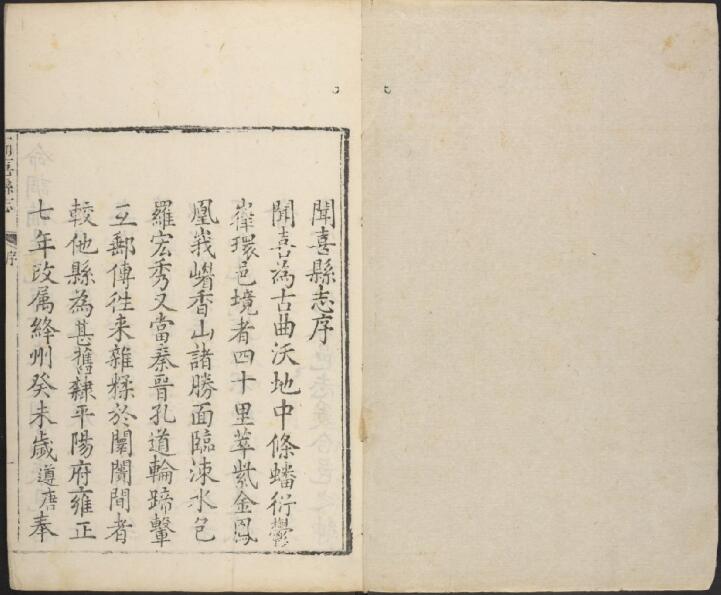 聞喜縣志序
聞喜為古曲沃地中條蟠衍鬱
嵂環邑境者四十里萃紫金鳳
凰峩嵋香山諸勝面臨涑水包
羅宏秀又當秦晉孔道輪蹄轂
互郵傳徃来雜糅於闤闠間者
較他縣為甚舊隸平陽府雍正
七年改属絳州癸未歲遵唐奉
聞喜縣志
序